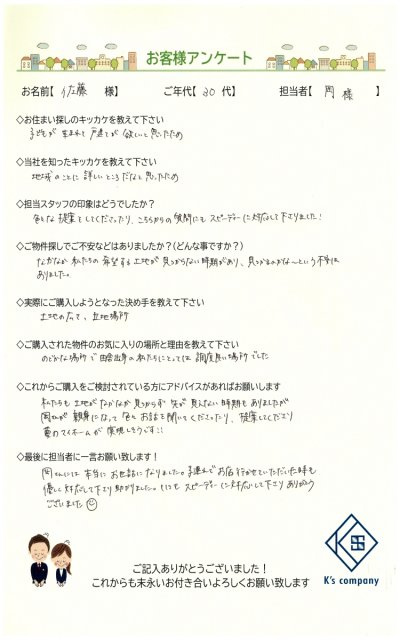 お客様アンケート
お名前【 佐藤 様】 ご年代【 30 代】 担当者【 岡 様 】
◇お住まい探しのキッカケを教えて下さい
子供が生まれて戸建てが欲しいと思ったため
◇当社を知ったキッカケを教えて下さい
地域のことに詳しいところだなと思ったため
◇担当スタッフの印象はどうでしたか?
色々な提案をしてくださったり、こちらからの質問にもスピーディーに対応して下さりました!
◇ご物件探しでご不安などはありましたか?(どんな事ですか?)
なかなか私たちの希望する土地が見つからない時期があり、見つかるのかな〜という不安は
ありました。
◇実際にご購入しようとなった決め手を教えて下さい
土地の広さ、立地場所
◇ご購入された物件のお気に入りの場所と理由を教えて下さい
のどかな場所で田舎出身の私たちにとっては調度良い場所でした
◇これからご購入をご検討されている方にアドバイスがあればお願いします
私たちも土地がなかなか見つからず先が見えない時期もありましたが
岡さんが親身になって色々お話を聞いてくださったり、提案してくださり
夢のマイホームが実現しそうです!!
◇最後に担当者に一言お願い致します!
岡さんには本当にお世話になりました。子連れでお店行かせていただいた時も
優しく対応して下さり助かりました。いつもスピーディーに対応して下さりありがとう
ございました
ご記入ありがとうございました!
これからも末永いお付き合いよろしくお願い致します
K's company